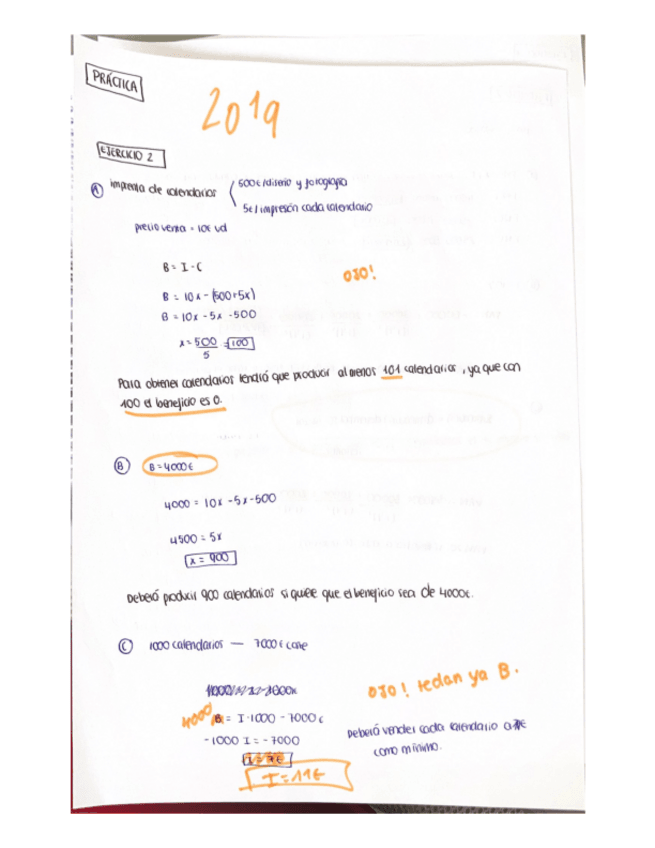 PRÁCTICA
2019
EJERCICIO 2
A Imprenta de calendarios
500€/diseño y fotografía
5€/impresión cada calendario
precio venta = 10€ ud
B = I - C
OJO!
B = 10x - (500+5x)
B = 10x - 5x - 500
x = 500/5 = 100
Para obtener calendarios tendrá que producir al menos 101 calendarios, ya que con
100 el beneficio es 0.
B B = 4000€
4000 = 10x - 5x - 500
4500 = 5x
x = 900
Deberá producir 900 calendarios si quiere que el beneficio sea de 4000€.
C 1000 calendarios — 7000€ coste
OJO! te dan ya B.
4000 B = I·1000 - 7000€
-1000 I = -7000
Deberá vender cada calendario a 7€
como mínimo.
I = 7€
I = 11€